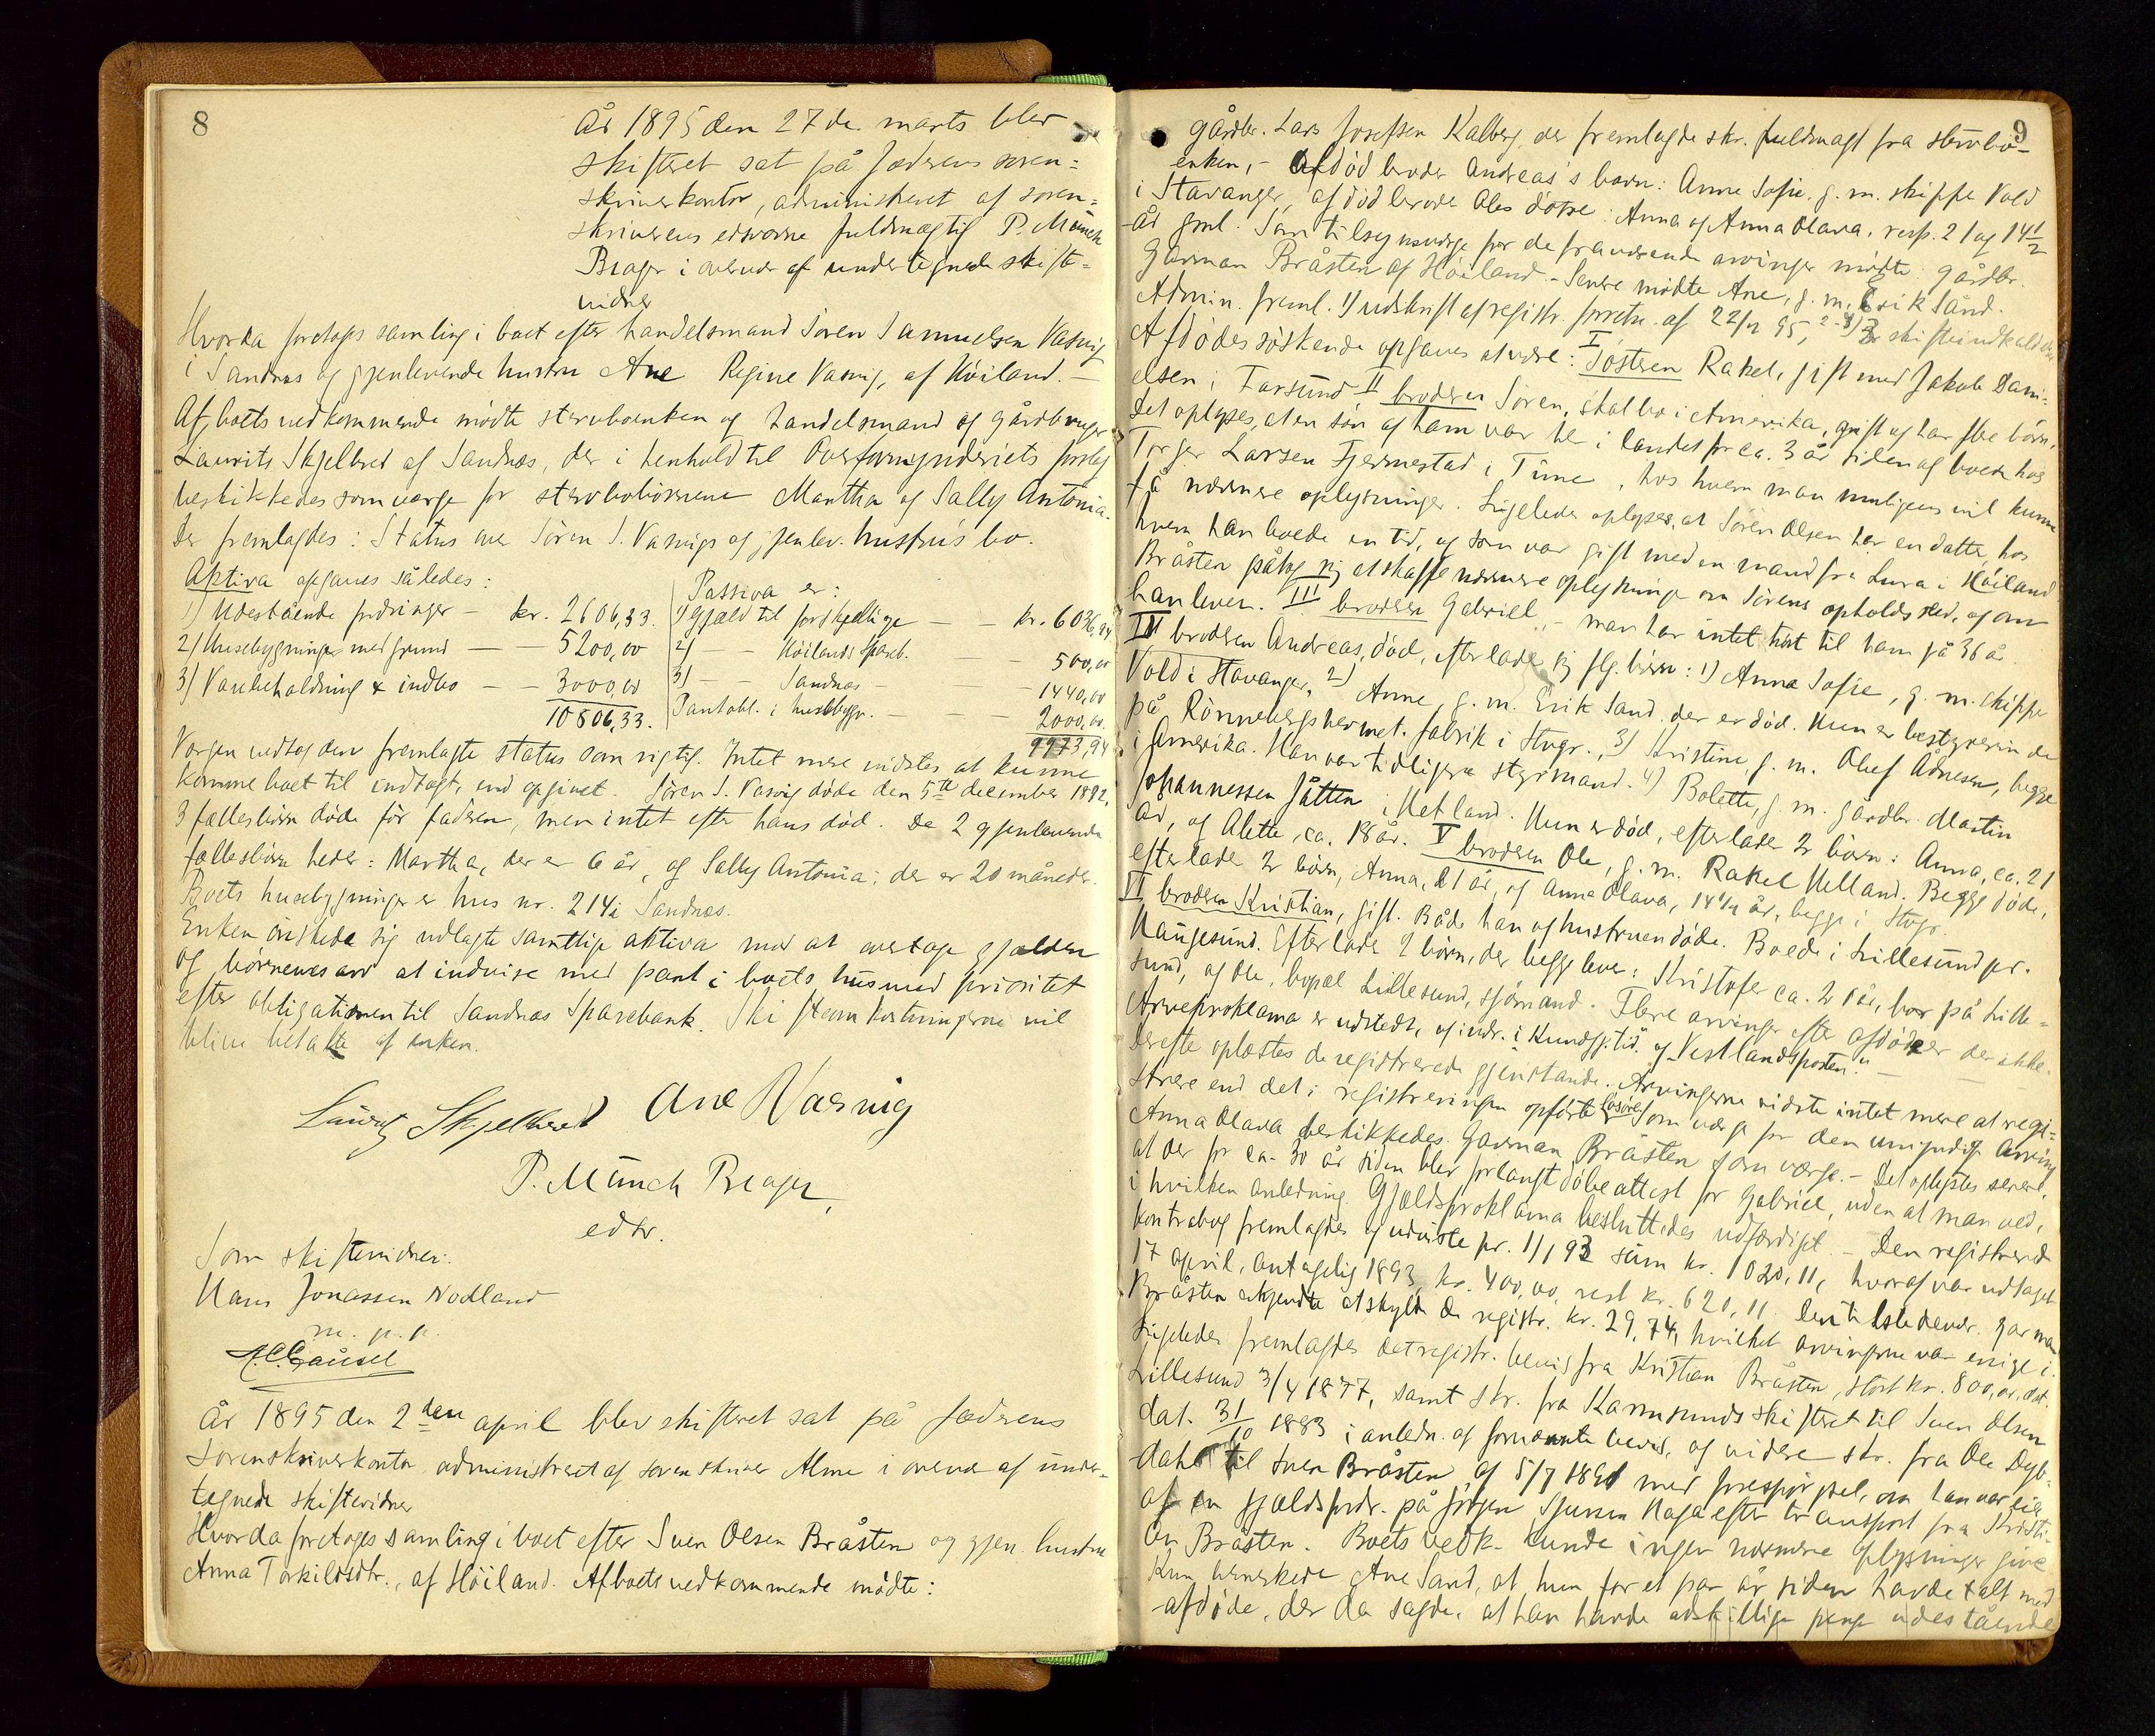 8
År 1895 den 27de. marts blev
skifteret sat på Jæderens soren=
skriverkontor, administreret af soren=
skriverens edsvorne fuldmægtig P. Münch
Brager i overvær af undertegnede skifte=
vidner
Hvorda foretoges samling i boet efter handelsmand Sören Samuelsen Vasvig
i Sandnæs og gjenlevende hustru Ane Regine Vasvig, af Höiland. —
Af boets vedkommende mödte stervboenken og handelsmand og gårdbruger
Laurits Skjelbred af Sandnæs, der i henhold til Overformynderiets forslag
beskikkedes som værge for stervbobörnene Martha og Sally Antonia.
Der fremlagdes: Status over Sören S. Vasvigs og gjenlev. hustrus bo.
Aktiva opgaves således:
Passiva er:
1) Udestående fordringer — kr. 2606,33. 1) Gjæld til forskjellige — — kr. 6036,94
2) Husebygninger med grund — — 5200,00 2) — — Höilands Spareb. — 500,00
3) Varebeholdning & indbo — — 3000,00 3) — — Sandnæs — — 1440,00
10806,33. Pantobl. i husebygn. — — — 2000,00
9973,94
Værgen vedtog den fremlagte status som rigtig. Intet mere vidstes at kunne
komme boet til indtægt, end opgivet. Sören S. Vasvig döde den 5te december 1892.
3 fællesbörn döde för faderen, men intet efter hans död. De 2 gjenlevende
fællesbörn heder: Martha, der er 6 år, og Sally Antonia, der er 20 måneder.
Boets husebygninger er hus nr. 214 i Sandnæs.
Enken önskede sig udlagte samtlige aktiva mod at overtage gjælden
og börnenes arv at indvise med pant i boets hus med prioritet
efter obligationen til Sandnæs Sparebank. Skifteomkostningerne vil
blive betalte af enken.
Laurits Skjelbred Ane Vasvig
P. Münch Brager,
edsv.
Som skiftevidner:
Hans Jonassen Nodland
m. p. p.
A. C. Gausel
År 1895 den 2den april blev skifteret sat på Jæderens
sorenskriverkontor administreret af sorenskriver Alme i overvær af under=
tegnede skiftevidner
Hvorda foretoges samling i boet efter Sven Olsen Bråsten og gjen. hustru
Anna Torkildsdtr., af Höiland. Af boets vedkommende mödte:
9
gårdbr. Lars Josefsen Kalberg, der fremlagde skr. fuldmagt fra stervbo-
enken, - Afdöd broder Andreas's barn: Anne Sofie, g. m. skipper Vold
i Stavanger, afdöd broder Oles dötre: Anna og Anna Olava, resp. 21 og 14 1/2
år gml. Som tilsynsværge for de fraværende arvinger mödte: gårdbr.
Garman Bråsten af Höiland. - Senere mödte Ane, g. m. Erik Sand.
Admin. freml. 1) udskrift af registr. forretn. af 22/2 95, 2-3) skifteindkaldelse
Afdödes söskende opgaves at være: I Söstren Rakel, gift med Jakob Dani=
elsen i Farsund II broderen Sören, skal bo i Amerika, gift og har flere börn,
det oplyses, at en sön af ham var her i landet for ca. 3 år siden og boede hos
Torger Larsen Fjermestad i Time, hos hvem man muligens vil kunne
få nærmere oplysninger. Ligeledes oplyses, at Sören Olsen har en datter, hos
hvem han boede en tid, og som var gift med en mand fra Lura i Höiland
Bråsten påtog sig at skaffe nærmere oplysninger om Sörens opholdssted, og om
han lever. III broderen Gabriel, - man har intet hört til ham på 36 år.
IIII broderen Andreas, död, efterlader sig flg. börn: 1) Anna Sofie, g. m. skipper
Vold i Stavanger, 2) Anne, g. m. Erik Sand, der er död. Hun er bestyrerinde
på Rönnebergs hermet. fabrik i Stvgr., 3) Kristine, g. m. Oluf Adnesen, begge
i Amerika. Han var tidligere styrmand. 4) Bolette, g. m. gårdbr. Martin
Johannessen Jåtten i Hetland. Hun er död, efterlader 2 börn: Anna, ca. 21
år, og Alette, ca. 18 år. V broderen Ole, g. m. Rakel Helland. Begge döde,
efterlader 2 börn, Anna, 21 år, og Anna Olava, 14 1/2 år, begge i Stvgr.
VI broderen Kristian, gift. Både han og hustruen döde. Boede i Lillesund pr.
Haugesund. Efterlader 2 börn, der begge lever: Kristofer ca. 28 år, bor på Lille=
sund, og Ole, bopæl Lillesund, sjömand. Flere arvinger efter afdöde er der ikke.
Arveproklama er udstedt, og indr. i Kundgj.tid. og „Vestlandsposten." —
Derefter oplæstes de registrerede gjenstande. Arvingerne vidste intet mere at regi=
strere end det i registreringen opförte lösöre. Som værge for den umyndige arving
Anna Olava beskikkedes Garman Bråsten som værge. - Det oplystes senere,
at der for ca. 30 år siden blev forlangt döbeattest for Gabriel, uden at man ved,
i hvilken anledning. Gjældsproklama besluttedes udfærdiget. - Den registrerede
kontrabog fremlagdes og udviste pr. 1/1 93 sum kr. 1020,11, hvoraf var udtaget
17 april, antagelig 1893, kr. 400,00, rest kr. 620,11. Den tilstedevær. Garman
Bråsten erkjendte at skylde de registr. kr. 29,74, hvilket arvingerne var enige i.
Ligeledes fremlagdes det registr. bevis fra Kristian Bråsten, stort kr. 800,00, dat.
Lillesund 3/4 1877, samt skr. fra Karmsunds skifteret til Sven Olsen
dat. 31/10 1883 i anledn. af fornævnte bevis, og videre skr. fra Ole Dyb=
dahl til Sven Bråsten af 5/7 1891 med forespörgsel, om han var eier
af en gjældsfordr. på Jörgen Sjursen Haga efter transport fra Kristi=
an Bråsten. Boets vedk. kunde ingen nærmere oplysninger give
Kun bemerkede Ane Sand, at hun for et par år siden havde talt med
afdöde, der da sagde, at han havde adskillige penge udestående